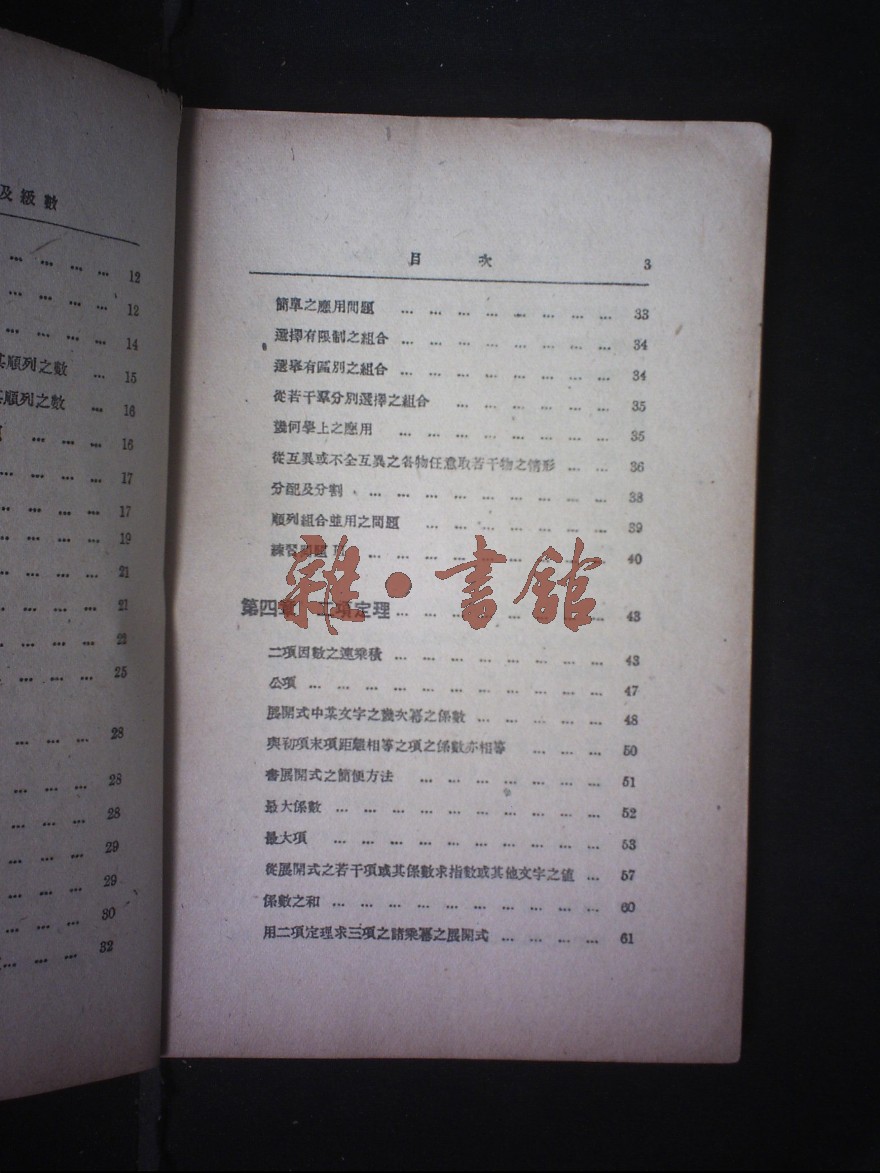 及級數
… … … … 12
… … … … 12
… … … … 14
其順列之數 … 15
其順列之數 … 16
… … … 16
… … … … 17
… … … … 17
… … … … 19
… … … … 21
… … … … 21
… … … … 23
… … … … 25
… … … … 28
… … … … 28
… … … … 28
… … … … 29
… … … … 29
… … … … 30
… … … 32
目 次 3
簡單之應用問題 … … … … … … … … 33
選擇有限制之組合 … … … … … … … … 34
選舉有區別之組合 … … … … … … … … 34
從若干羣分別選擇之組合 … … … … … … 35
幾何學上之應用 … … … … … … … … 35
從互異或不全互異之各物任意取若干物之情形 … … 36
分配及分割 … … … … … … … … … 38
順列組合並用之問題 … … … … … … … 39
練習問題 … … … … … … … … … 40
雜·書館
第四章 二項定理 … … … … … … … … 43
二項因數之連乘積 … … … … … … … … 43
公項 … … … … … … … … … … … 47
展開式中某文字之幾次冪之係數 … … … … … 48
與初項末項距離相等之項之係數亦相等 … … … … 50
書展開式之簡便方法 … … … … … … … 51
最大係數 … … … … … … … … … … 52
最大項 … … … … … … … … … … 53
從展開式之若干項或其係數求指數或其他文字之値 … 57
係數之和 … … … … … … … … … … 60
用二項定理求三項之諸乘冪之展開式 … … … … 61